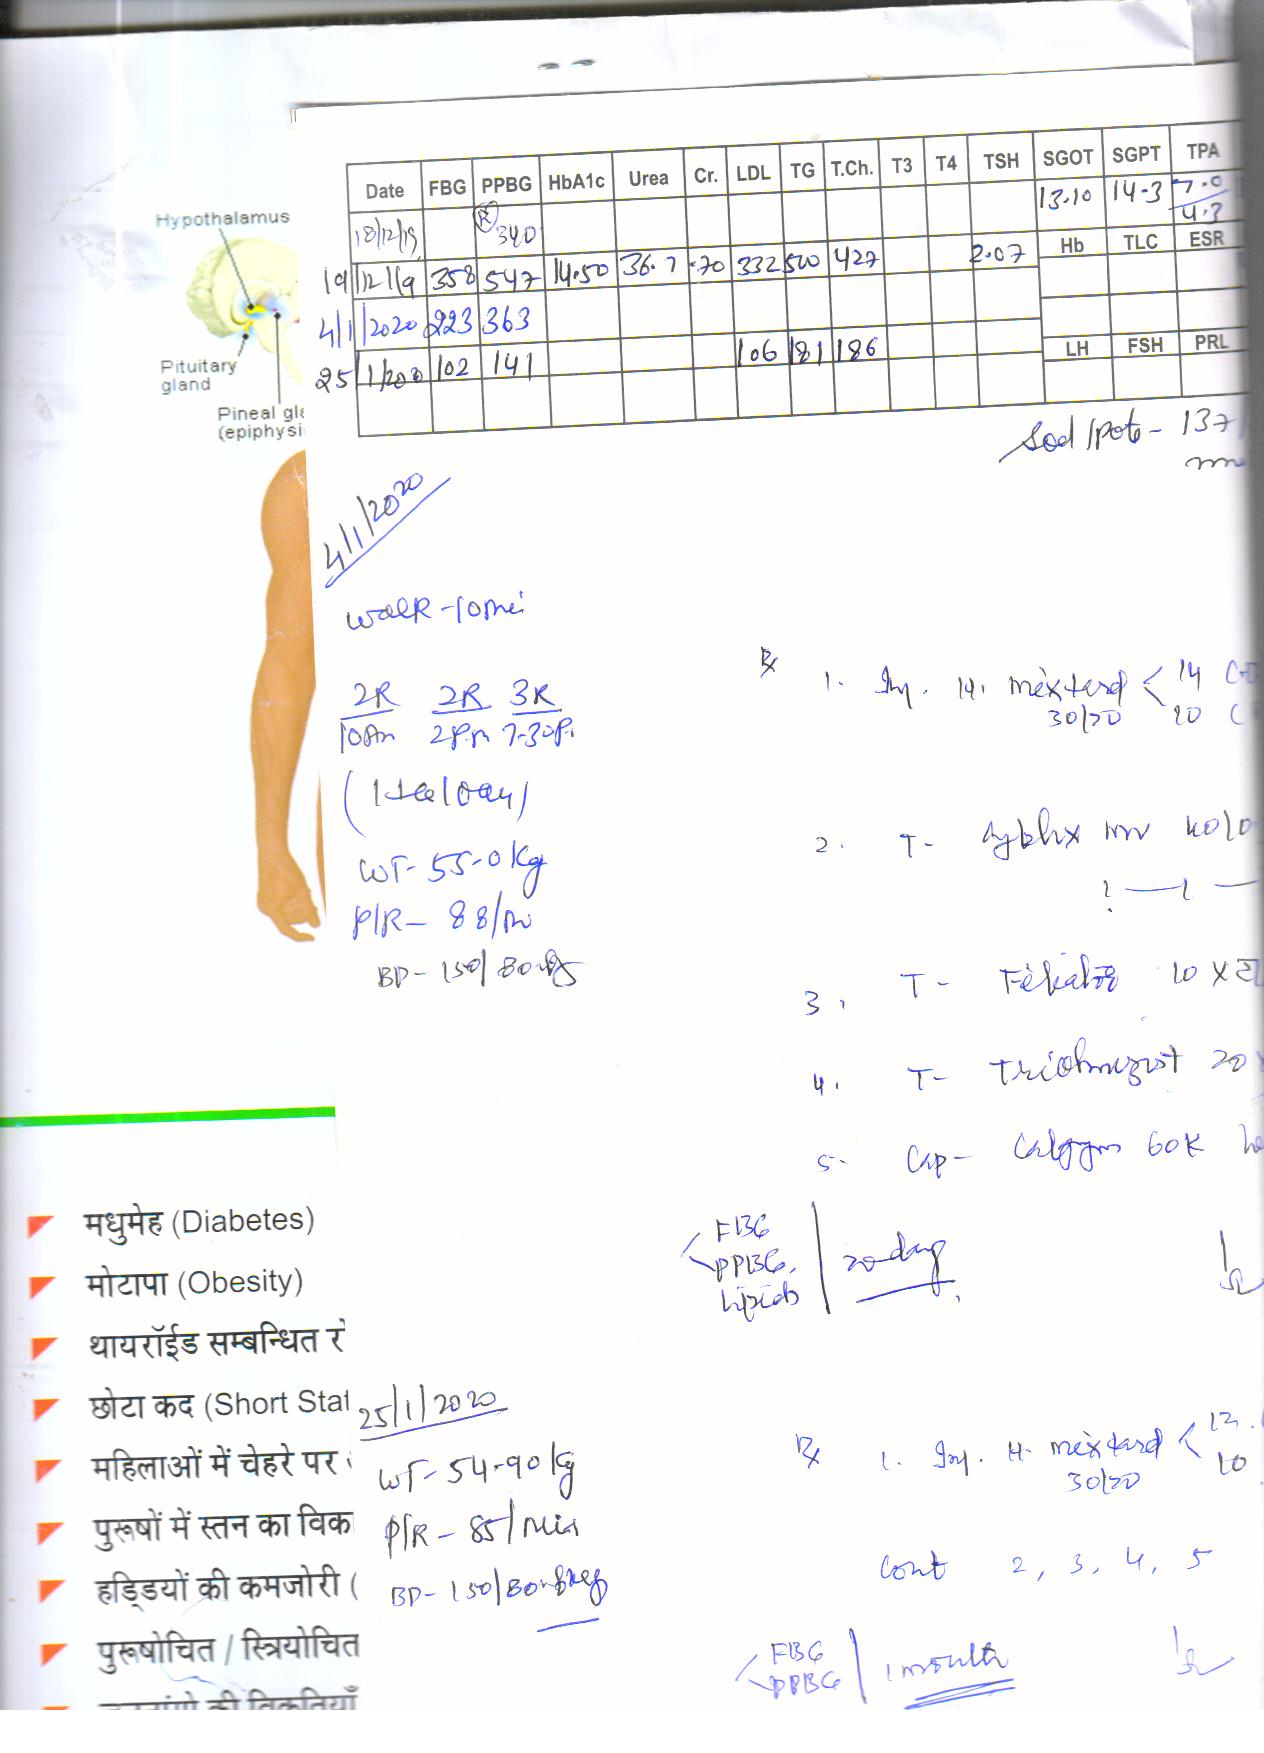 Hypothalamus
Pituitary
gland
Pineal gl
(epiphysi
Date FBG PPBG HbA1c Urea Cr. LDL TG T.Ch. T3 T4 TSH SGOT SGPT TPA
13.10 14.3 7.0
4.3
18/12/19 (R) 340
Hb TLC ESR
19/12/19 358 547 14.50 36.7 .70 332 500 427 2.07
4/1/2020 223 363
LH FSH PRL
25/1/2020 102 141 106 181 186
Sod/pot - 137/
4/1/2020
Walk - 10 mi
2R 2R 3R
10 Am 2 P.m 7-30 P.
WT- 55-0 Kg
P/R - 88/m
BP - 150/80
Rx 1. Inj. H. mixtard < 14
30/70 10
2. T-
3. T- 10 x
4. T- 20
5- Cap- 60K
FBG
PPBG
Lipids
20 day
मधुमेह (Diabetes)
मोटापा (Obesity)
थायरॉईड सम्बन्धित रो
छोटा कद (Short Stat
महिलाओं में चेहरे पर
पुरूषों में स्तन का विका
हड्डियों की कमजोरी (
पुरूषोचित / स्त्रियोचित
25/1/2020
WT- 54-90 Kg
P/R - 85/min
BP- 150/80
Rx 1. Inj. H. mixtard < 12.
30/70 10
Cont 2, 3, 4, 5
FBG
PPBG
1 month